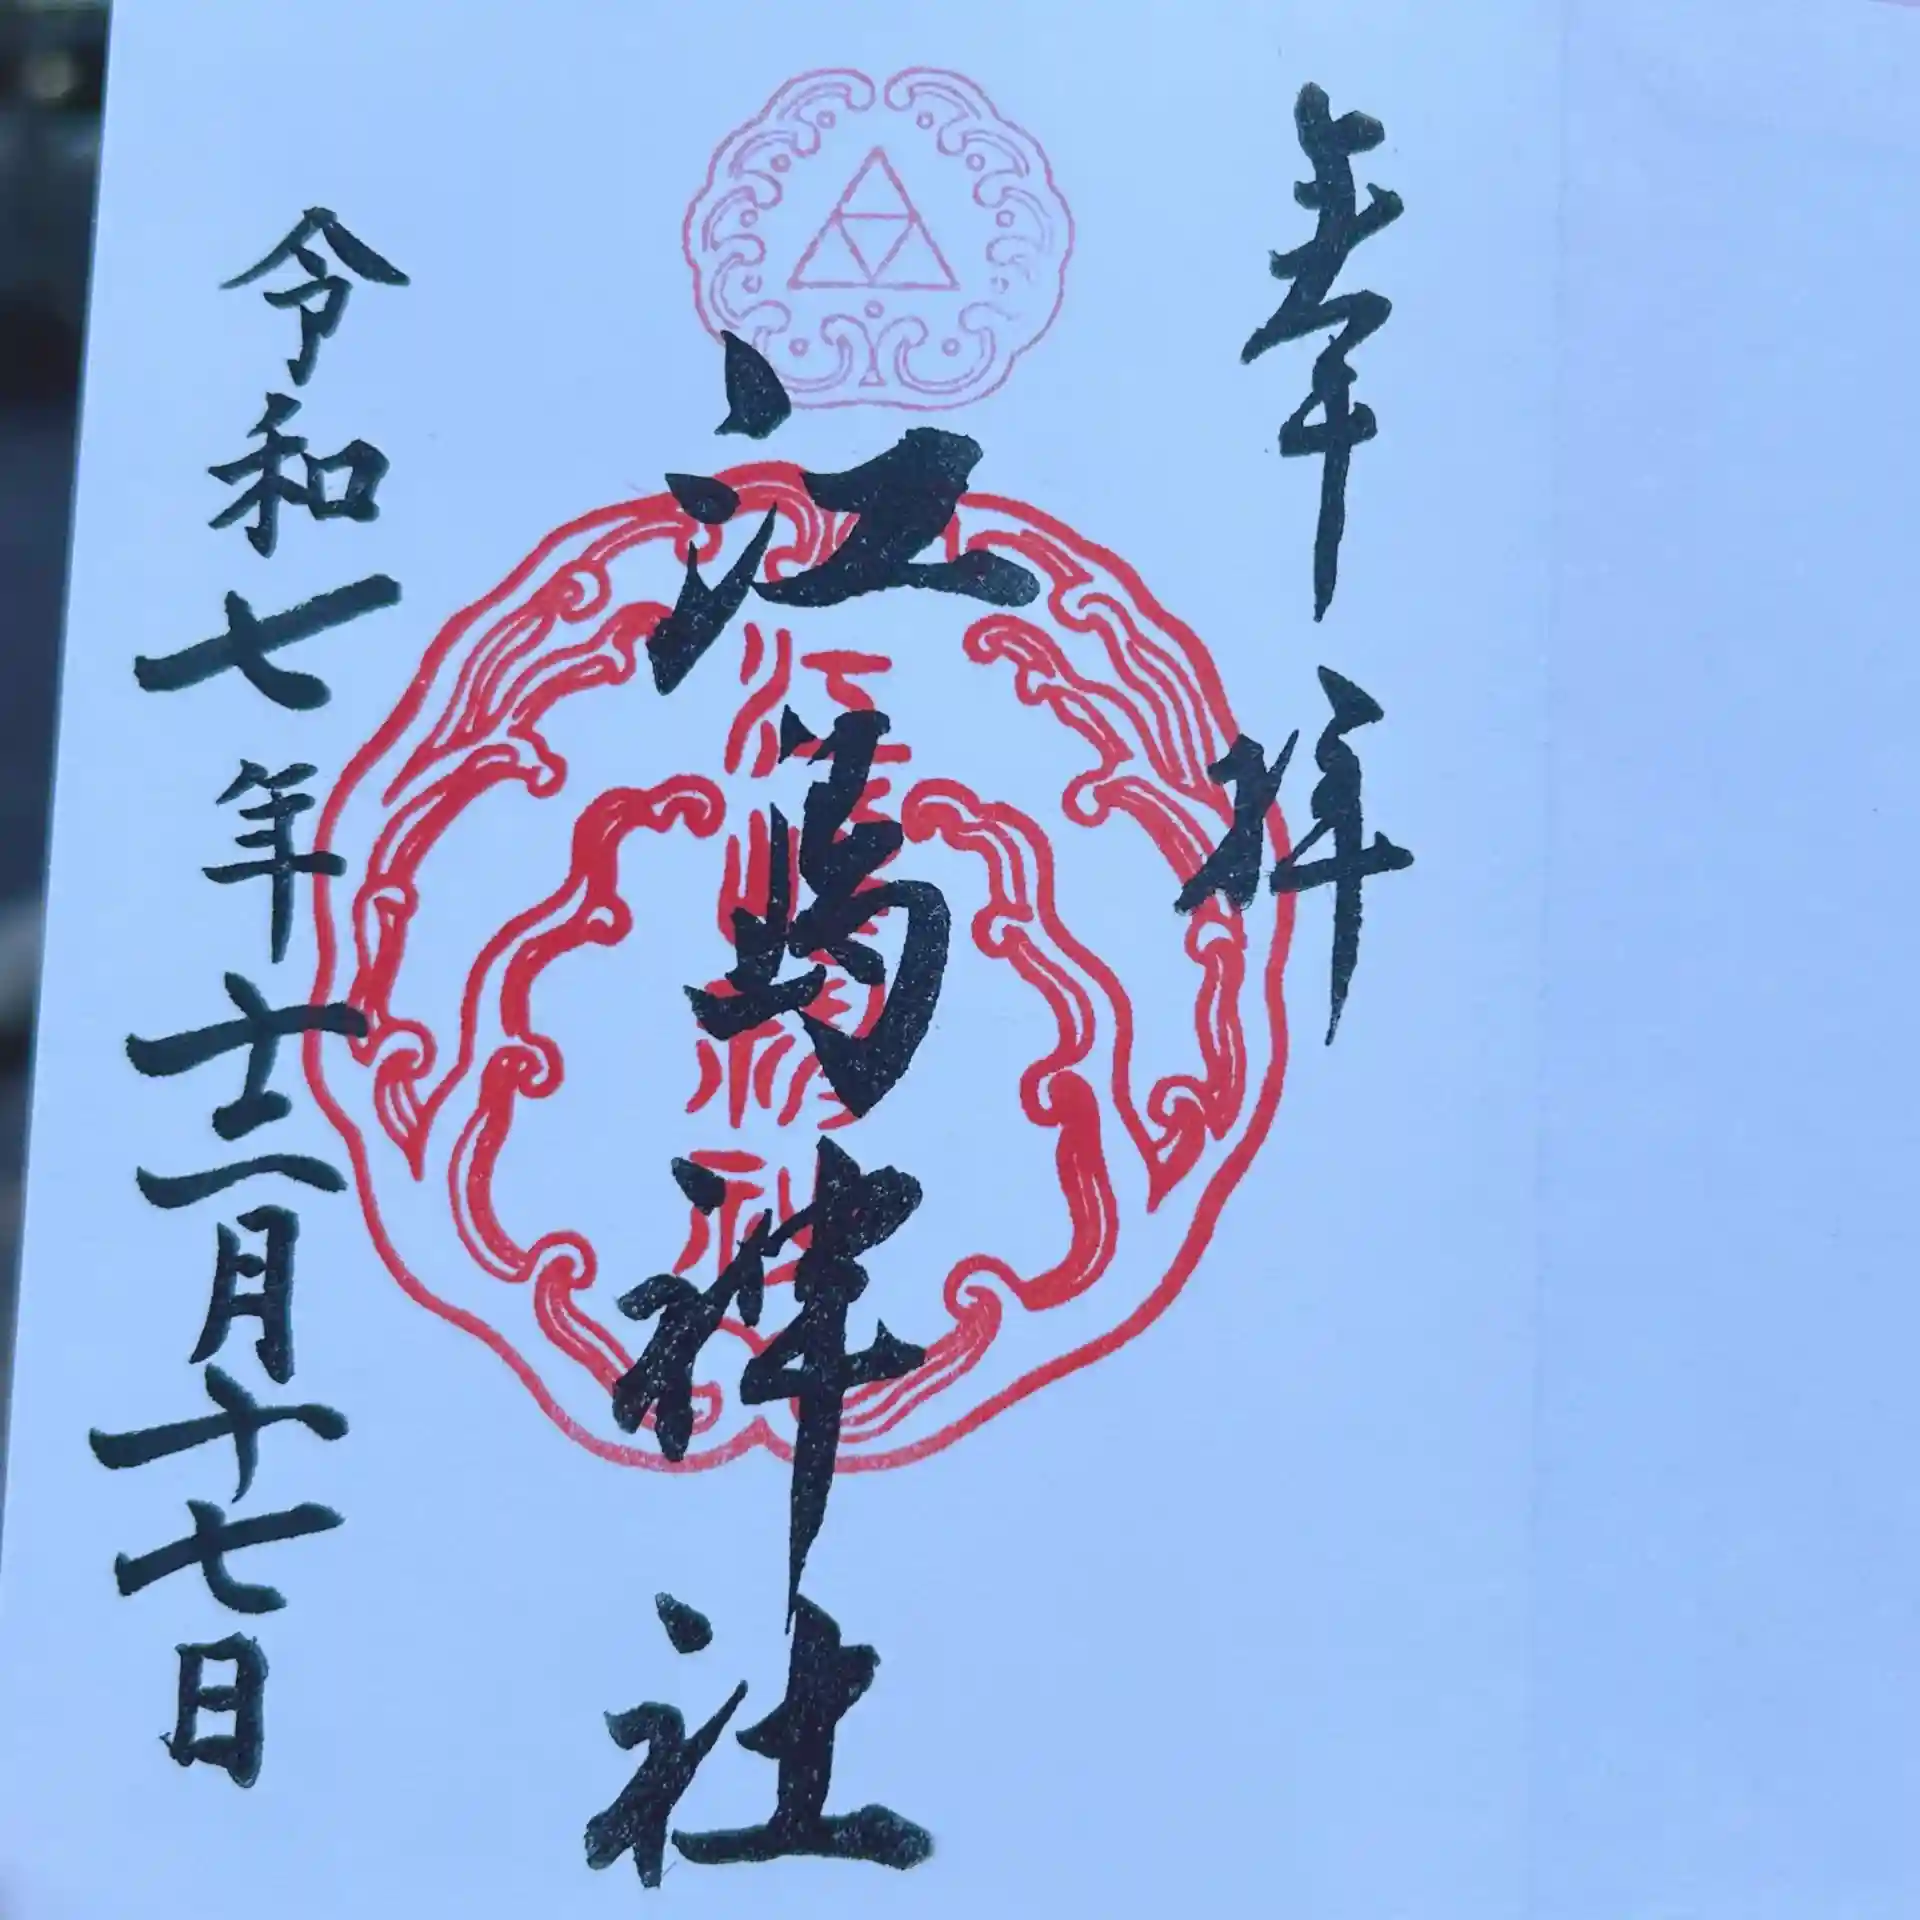 奉拝
江島神社
江島神社
令和七年十二月十七日